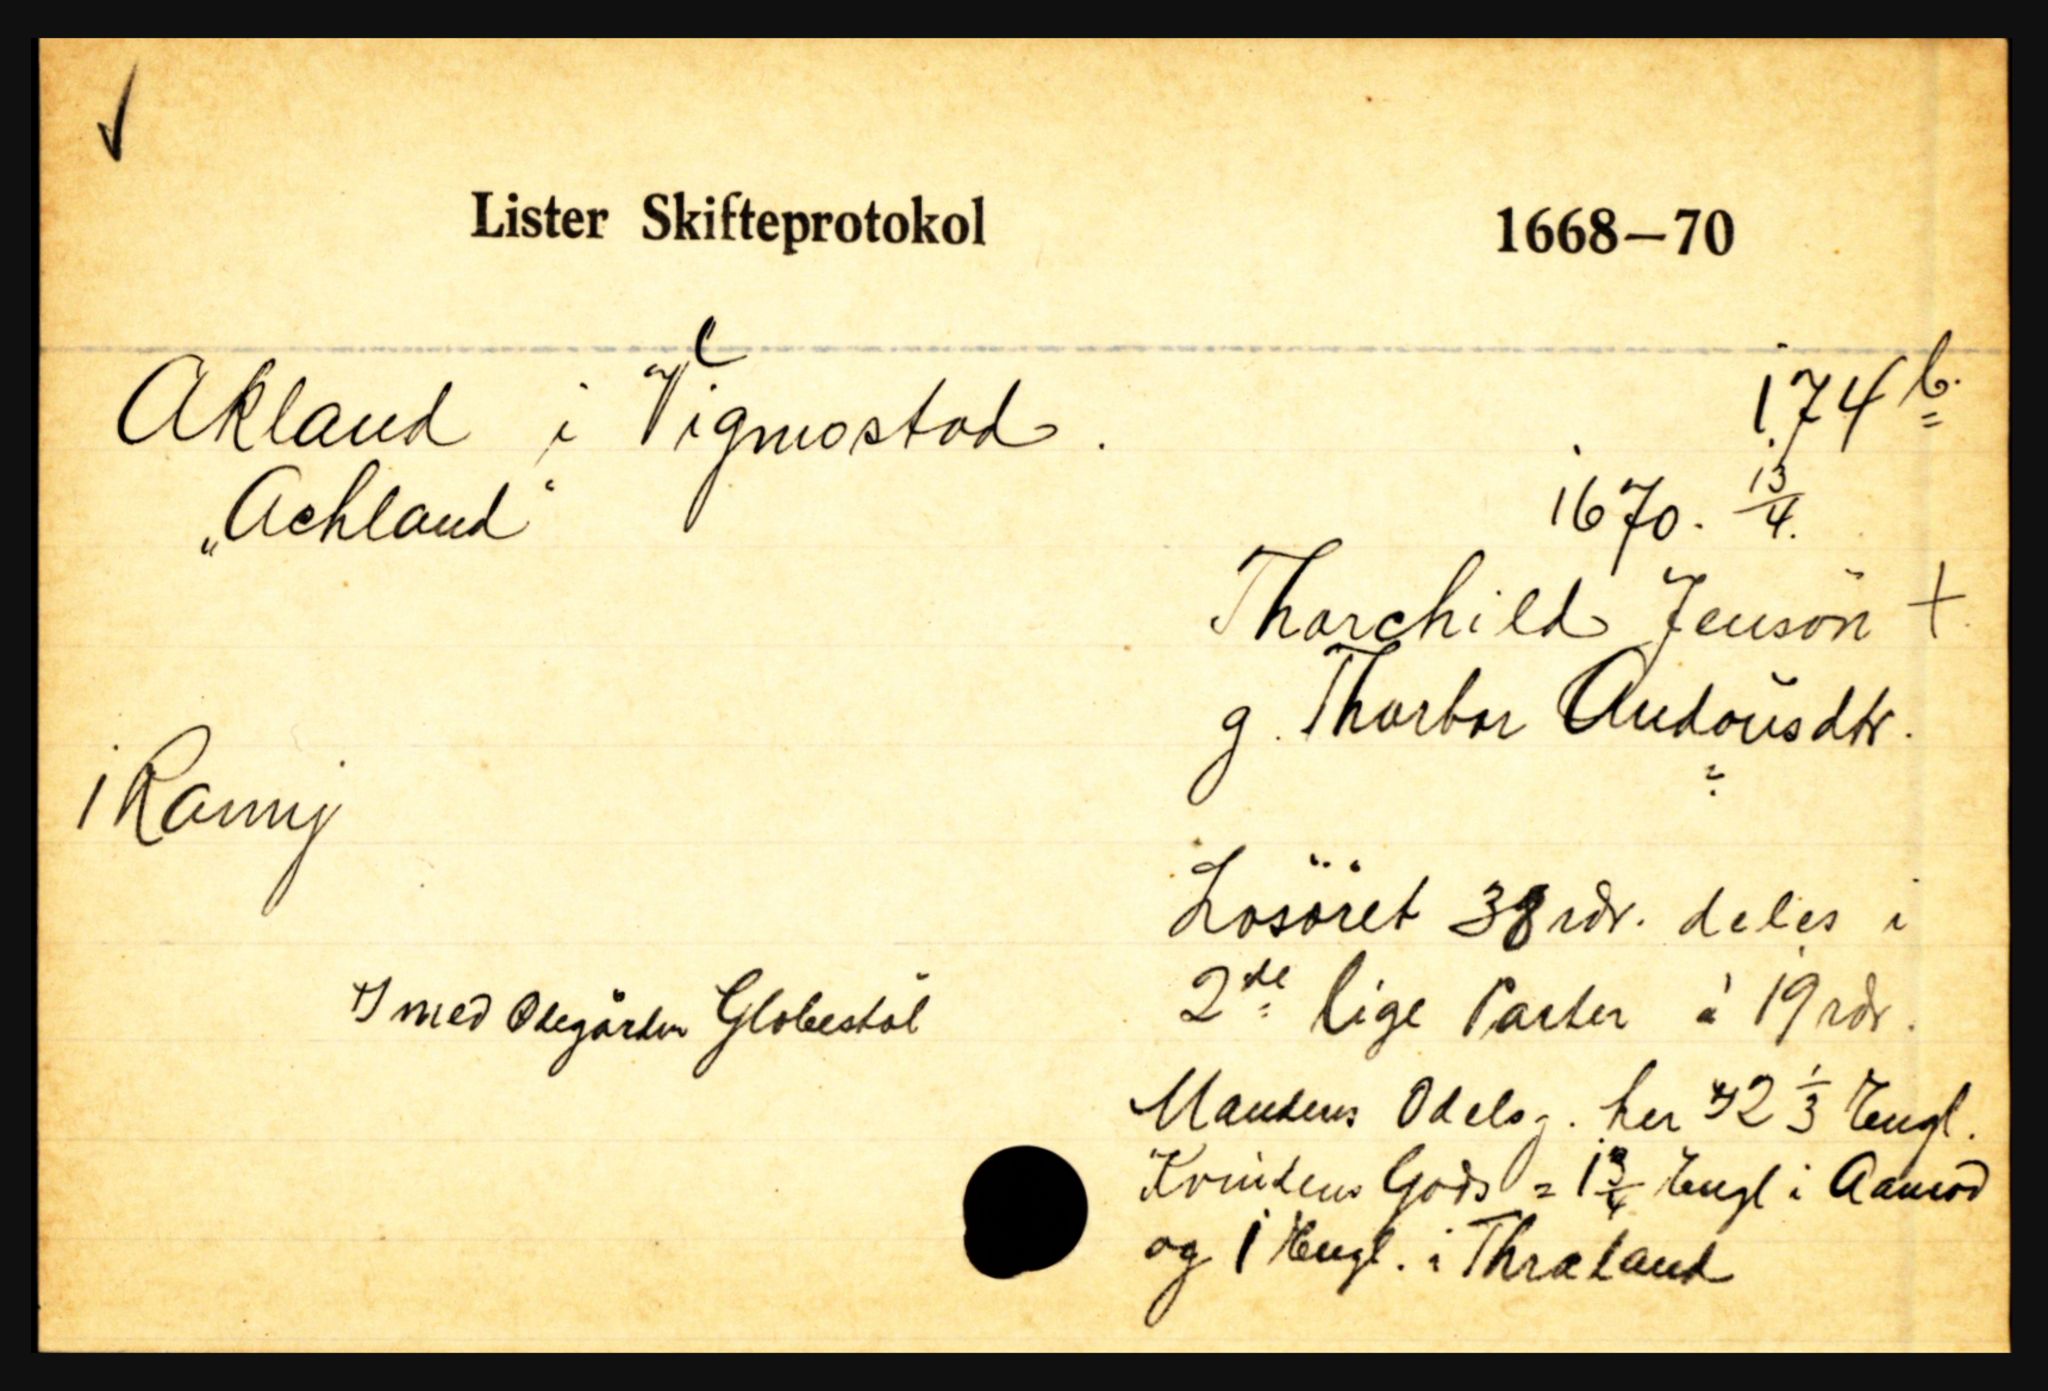 Lister Skifteprotokol 1668–70
Akland i Vigmostad. 174 b.
„Achland“ 1670. 13/4.
Thorchild Jensön +.
g. Thorbor Audounsdtr.
i Ramij
Lösöret 38 rdr. deles i
2de lige Parter à 19 rdr.
med Ödegården Globestöl
Mandens Odelsg. her 2 1/3 Engl.
Kvindens Gods = 1 3/4 Engl i Aamod
og 1 Engl. i Thraland